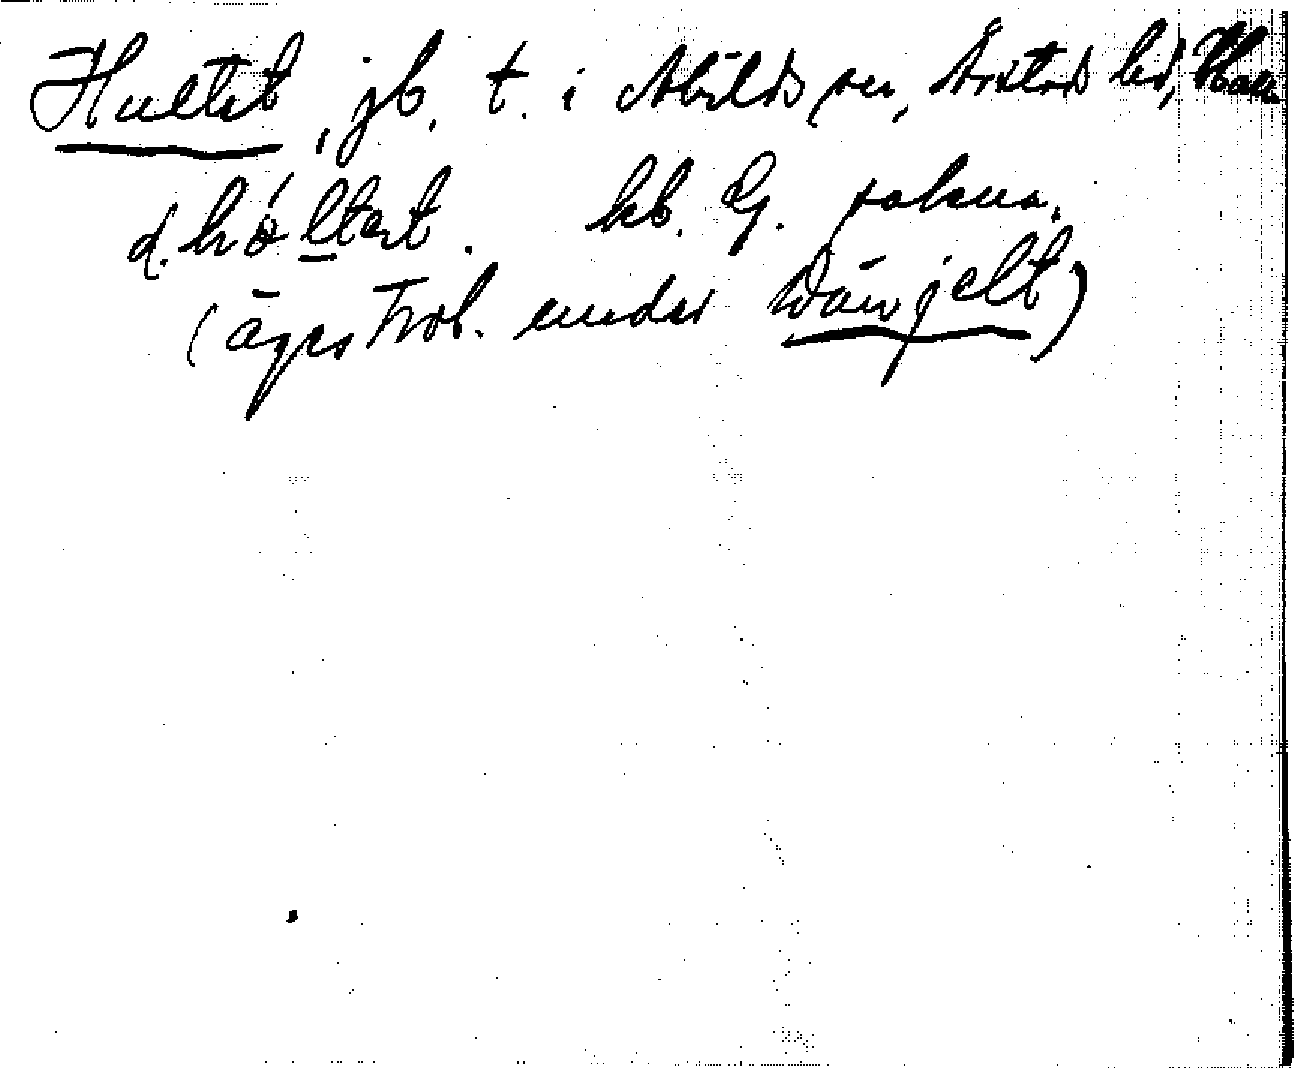 Hultet, jb. t. i Abilds sn, Årstad hd, Hall.
d. hó̀ltət. kb. G. sakna.
(äges trol. under Wänjelt)